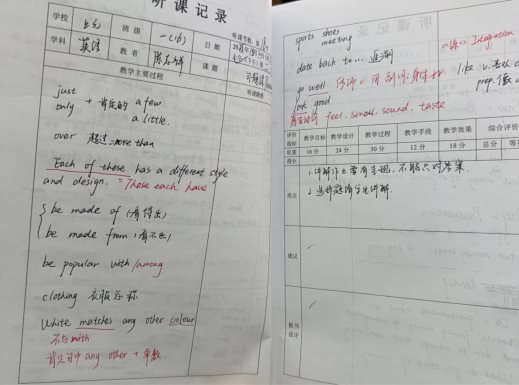 听课记录
学校
班级
一(6)
日期
学科
英语
教者
课题
教学主要过程
just
only + 肯定的 a few
a little.
over 超过 = more than
Each of these has a different style
and design. = These each have
be made of (看得出)
be made from (看不出)
be popular with /among
clothing 衣服总称
White matches any other colour
不与with
肯定句中 any other + 单数
听课记录
sports shoes
meeting
date back to... 追溯
go well
look good
感官动词 feel. smell. sound. taste
Integration
like v.
prep.
评价指标
教学目标
教学设计
教学过程
教学手段
教学效果
综合评价
权重
16分
24分
30分
12分
18分
总分
得分
亮点
1.讲解作业要有呈现,不能只对答案
2.选择题请学生讲解.
建议
板书设计